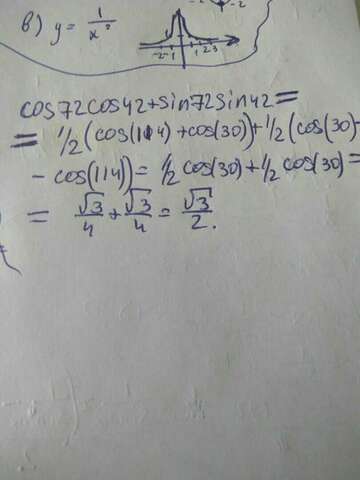 в) y = 1/x²
-2 -1 1 2 3
cos72cos42+sin72sin42=
= 1/2(cos(114)+cos(30))+1/2(cos(30)-
- cos(114))= 1/2cos(30)+1/2cos(30)=
= √3/4 + √3/4 = √3/2.